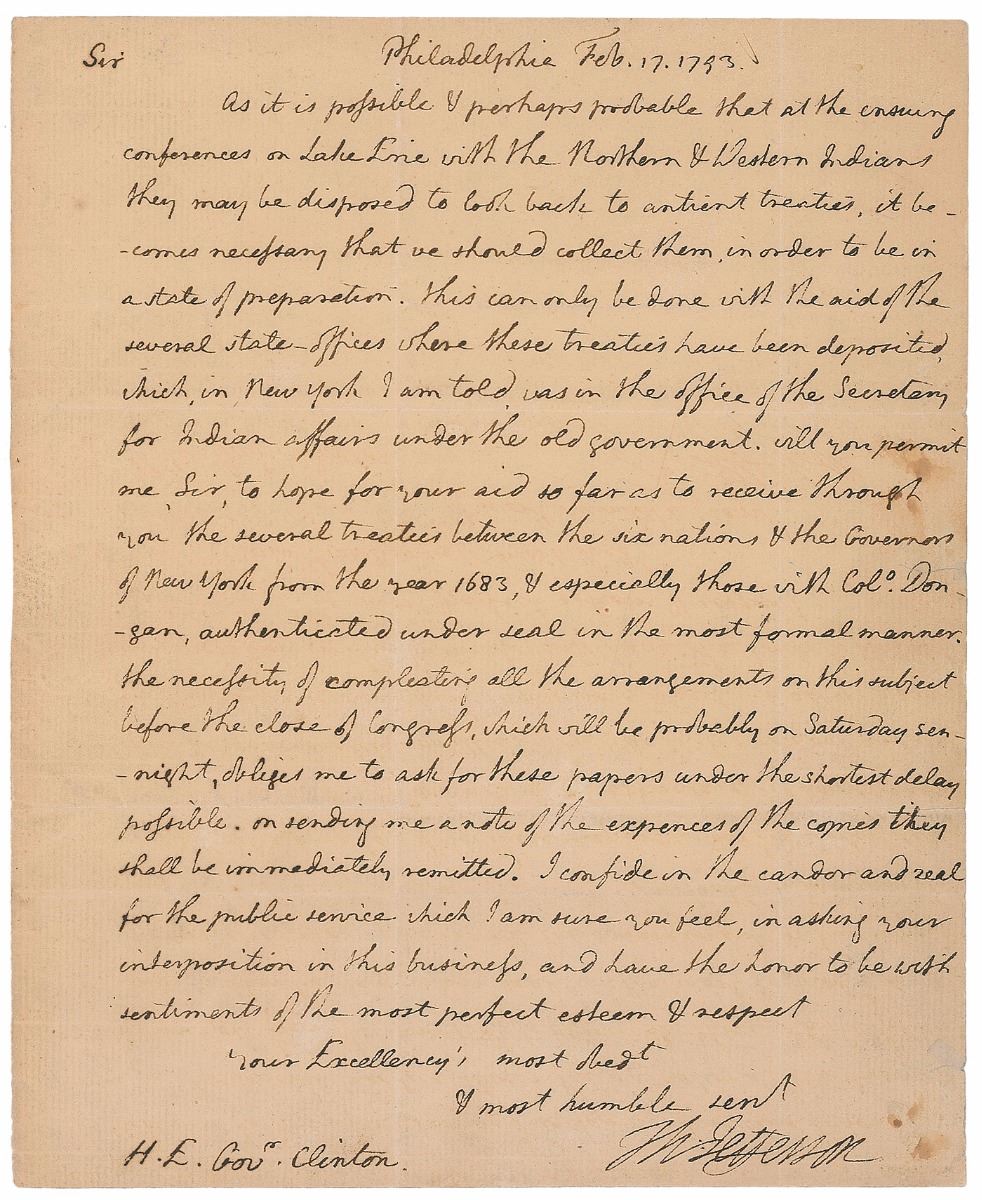 Sir Philadelphia Feb. 17. 1793.
As it is possible & perhaps probable that at the ensuing
conferences on Lake Erie with the Northern & Western Indians
they may be disposed to look back to antient treaties, it be-
-comes necessary that we should collect them, in order to be in
a state of preparation. this can only be done with the aid of the
several state-offices where these treaties have been deposited,
which, in New York I am told, was in the office of the Secretary
for Indian affairs under the old government. will you permit
me, Sir, to hope for your aid so far as to receive through
you the several treaties between the six nations & the Governors
of New York from the year 1683, & especially those with Colo. Don-
-gan, authenticated under seal in the most formal manner.
the necessity of compleating all the arrangements on this subject
before the close of Congress, which will be probably on Saturday sen-
-night, obliges me to ask for these papers under the shortest delay
possible. on sending me a note of the expences of the copies they
shall be immediately remitted. I confide in the candor and zeal
for the public service which I am sure you feel, in asking your
interposition in this business, and have the honor to be with
sentiments of the most perfect esteem & respect
your Excellency's most obedt
& most humble servt
Th: Jefferson
H. E. Govr. Clinton.